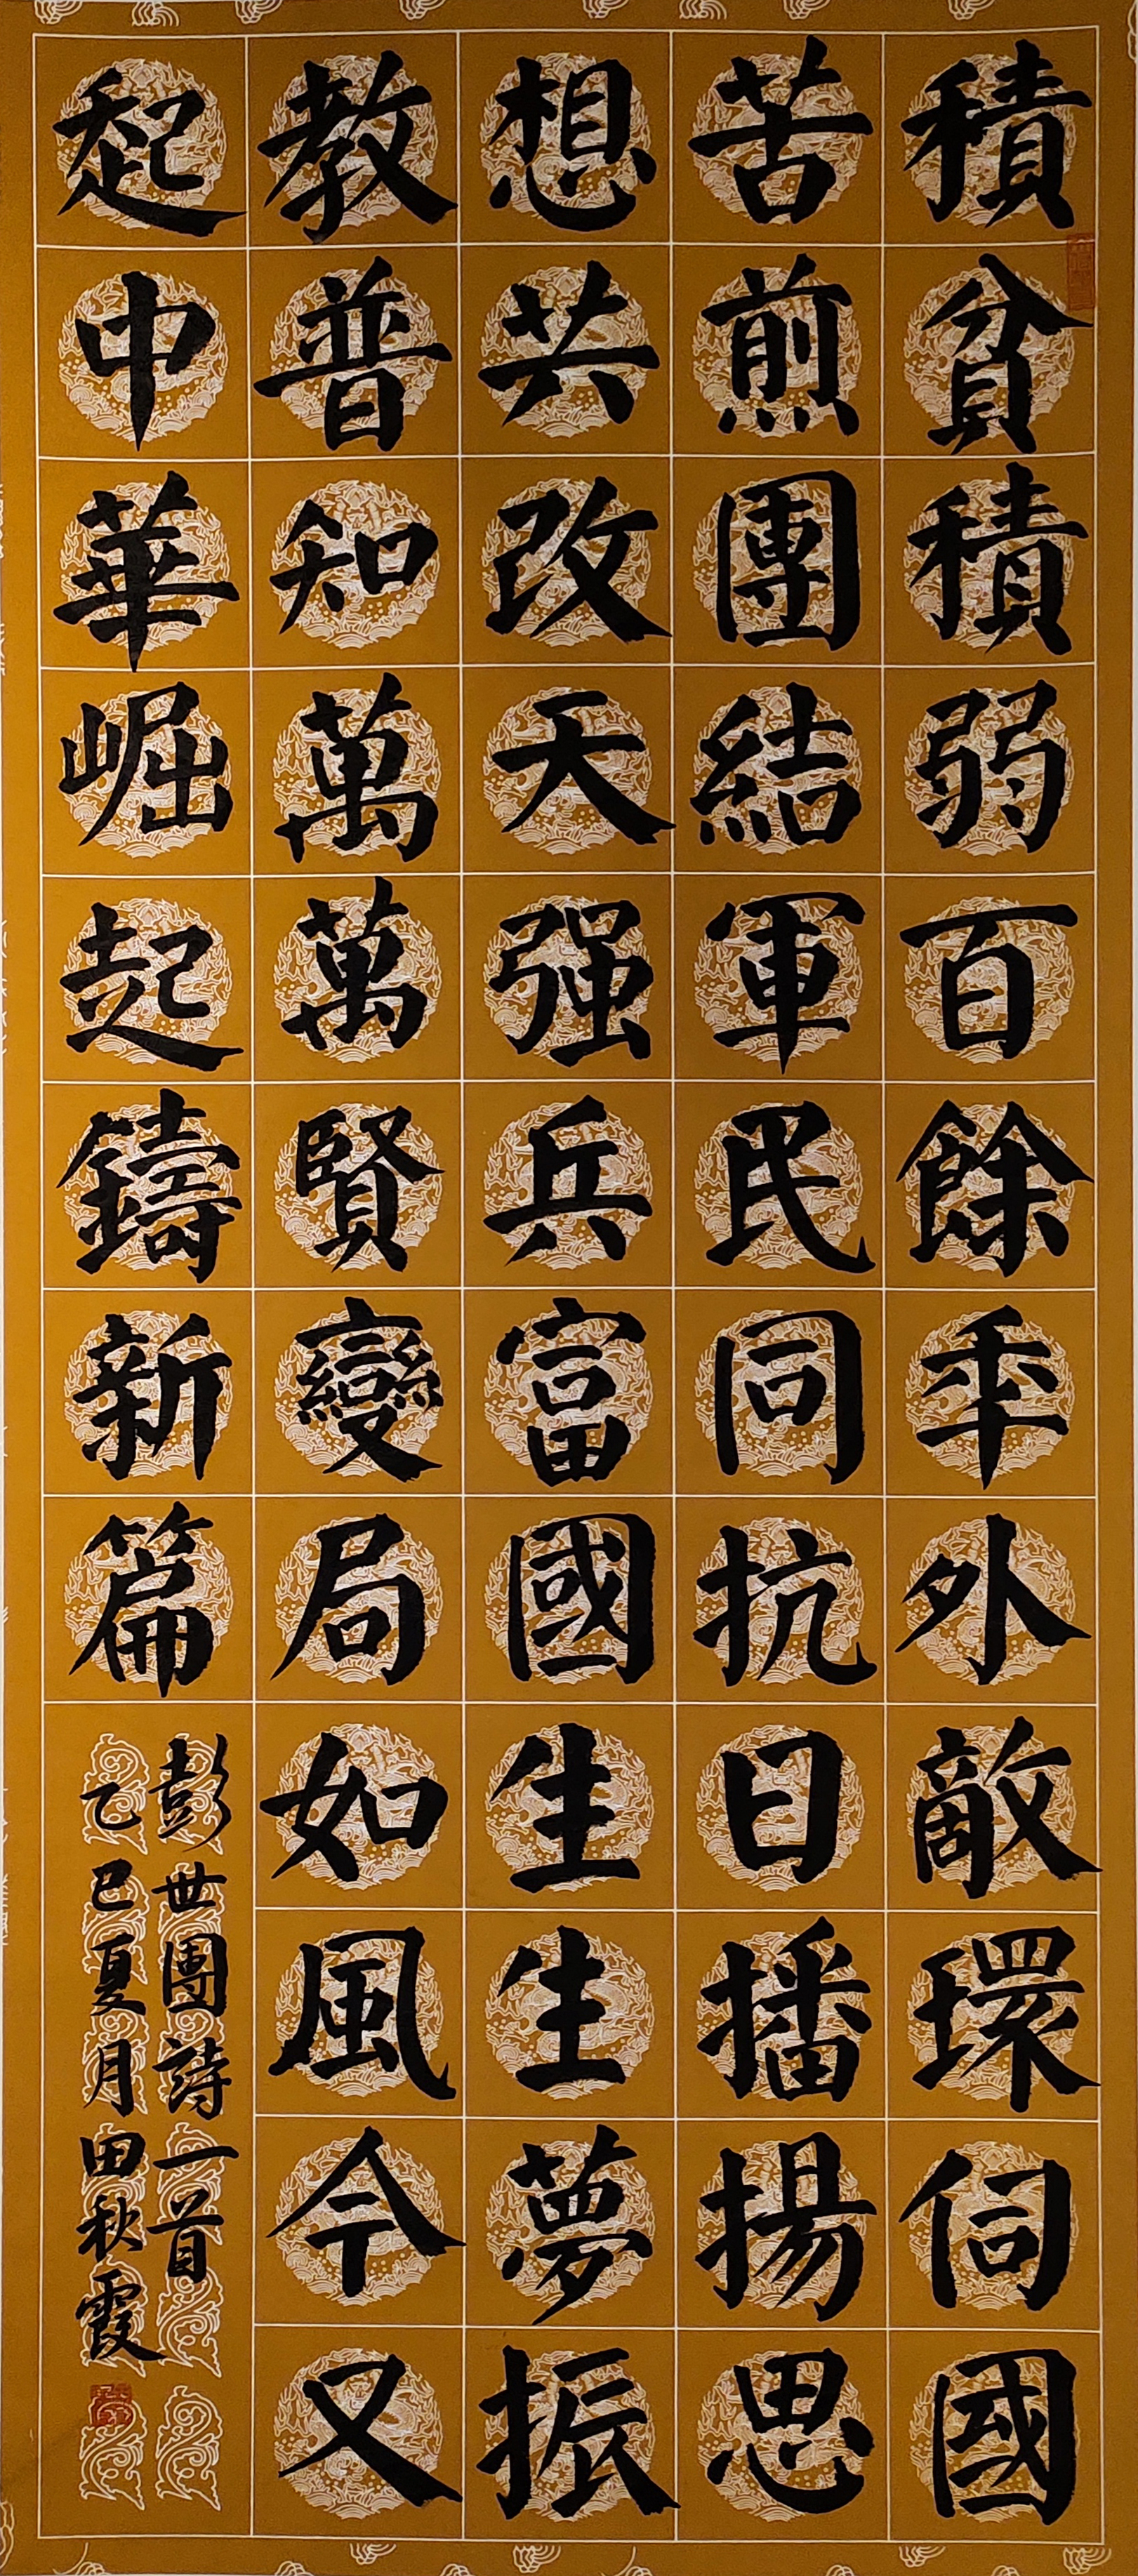 積貧積弱百餘年外敵環伺國
苦煎團結軍民同抗日播揚思
想共改天强兵富國生生夢振
教普知萬萬賢變局如風今又
起中華崛起鑄新篇
彭世團詩一首
乙巳夏月田秋霞